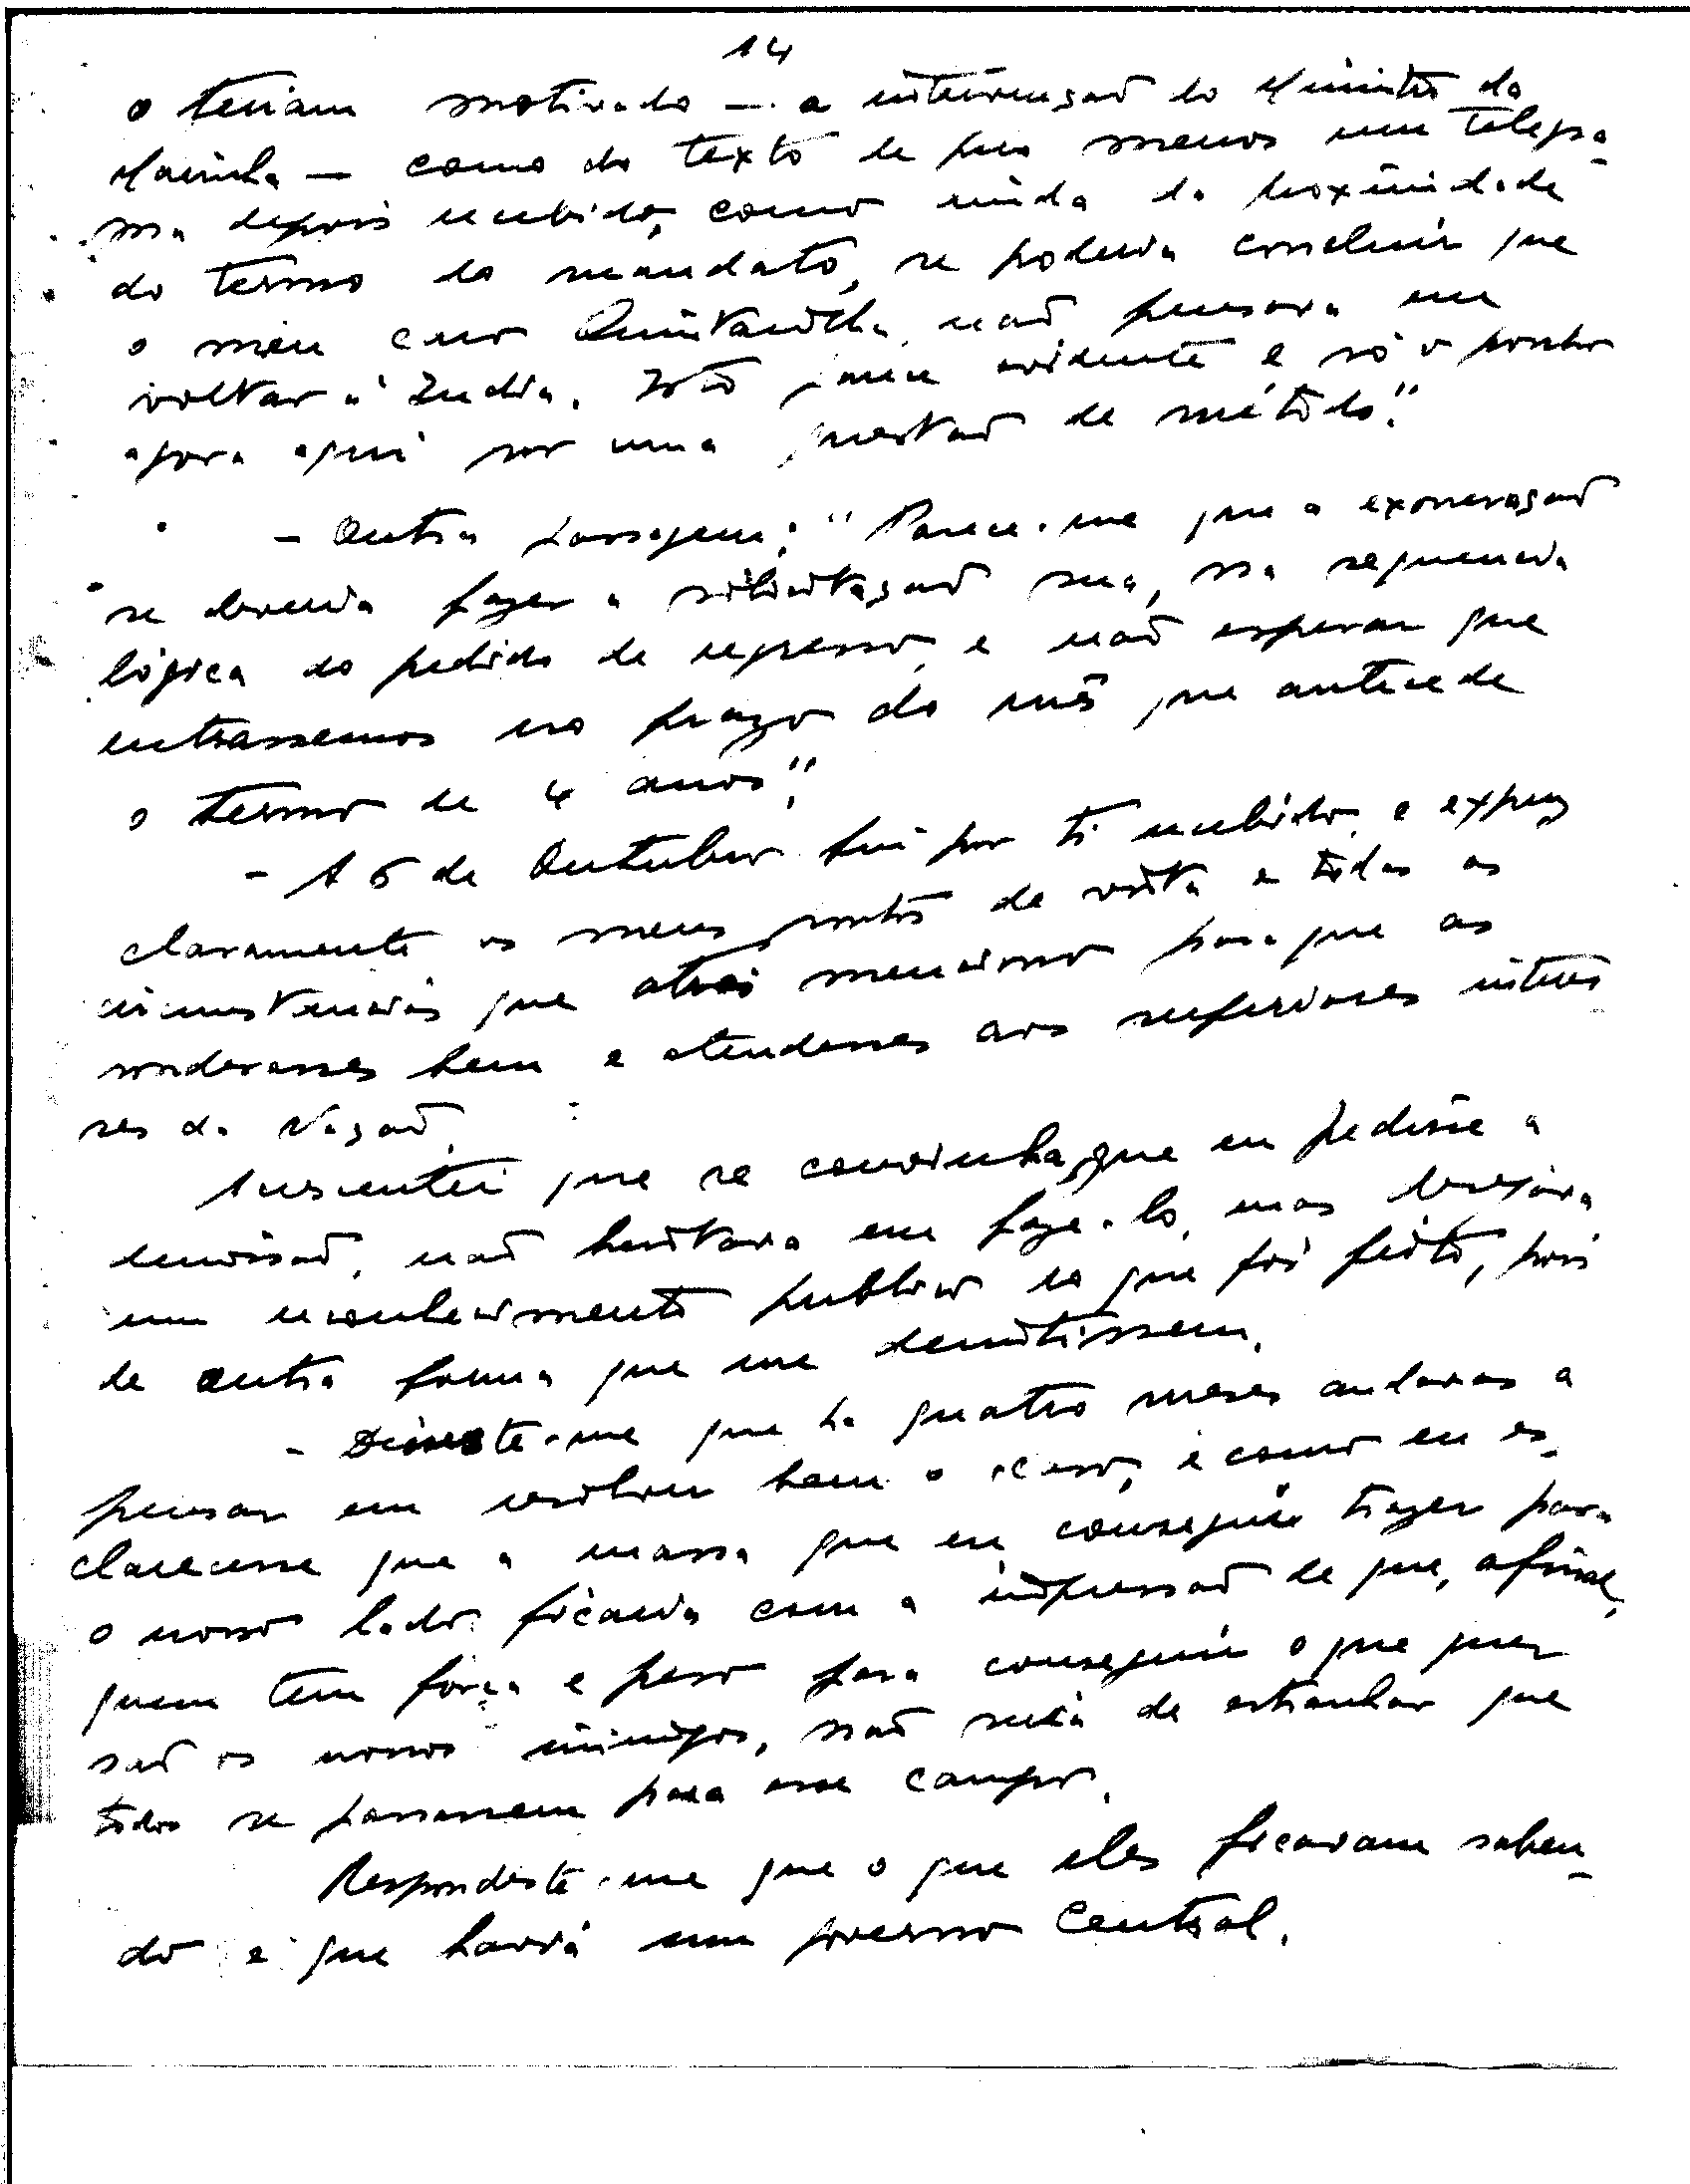 14
o teriam motivado — a intervenção do Ministro da
Marinha — como do texto de pelo menos um telegra-
ma depois recebido, como ainda da proximidade
do termo do mandato, se poderia concluir que
o meu caro Quintanilha não pensava em
voltar à India. Isto parece evidente e só o ponho
agora aqui por uma questão de método."
- Outra passagem: "Parece-me que a exoneração
se deveria fazer a solicitação sua, na sequencia
lógica do pedido de regresso, e não esperar que
entrassemos no prazo do mês que antecede
o termo de 4 anos".
- A 6 de Outubro fui por ti recebido, e expuz
claramente os meus pontos de vista e todas as
circunstancias que atrás menciono para que as
ponderasses bem e atendesses aos superiores interes-
ses da Nação.
Acrescentei que se convinha que eu pedisse a
demissão, não hesitava em faze-lo, mas desejava
um reconhecimento publico do que foi feito, pois
de outra forma que me demitissem.
- Disseste-me que ha quatro meses andavas a
pensar em resolver bem o caso, e como eu es-
clarecesse que a massa que eu consegui trazer para
o nosso lado ficaria com a impressão de que, afinal,
quem tem força e peso para conseguir o que quer
são os nossos inimigos, não será de estranhar que
todos se passassem para esse campo.
Respondeste-me que o que eles ficavam saben-
do é que havia um governo Central.